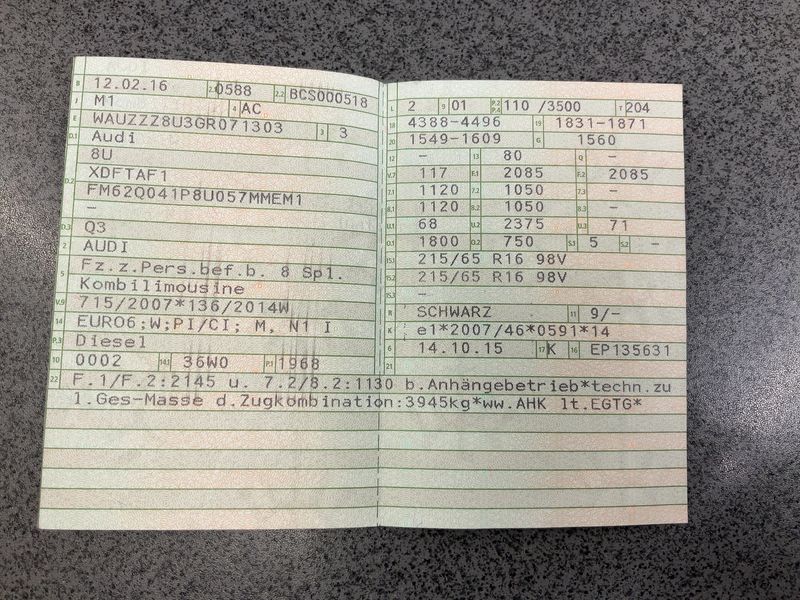 B 12.02.16 2.1 0588 2.2 BCS000518
J M1 4 AC
E WAUZZZ8U3GR071303 3 3
D.1 Audi
8U
D.2 XDFTAF1
FM62Q041P8U057MMEM1
–
D.3 Q3
2 AUDI
5 Fz.z.Pers.bef.b. 8 Spl.
Kombilimousine
V.9 715/2007*136/2014W
14 EURO6;W;PI/CI; M, N1 I
P.3 Diesel
10 0002 14.1 36W0 P.1 1968
L 2 9 01 P.2 P.4 110 /3500 T 204
18 4388-4496 19 1831-1871
20 1549-1609 G 1560
12 – 13 80 Q –
V.7 117 F.1 2085 F.2 2085
7.1 1120 7.2 1050 7.3 –
8.1 1120 8.2 1050 8.3 –
U.1 68 U.2 2375 U.3 71
O.1 1800 O.2 750 S.1 5 S.2 –
15.1 215/65 R16 98V
15.2 215/65 R16 98V
15.3 –
R SCHWARZ 11 9/–
K e1*2007/46*0591*14
6 14.10.15 17 K 16 EP135631
21
22 F.1/F.2:2145 u. 7.2/8.2:1130 b.Anhängebetrieb*techn.zu
l.Ges-Masse d.Zugkombination:3945kg*ww.AHK lt.EGTG*